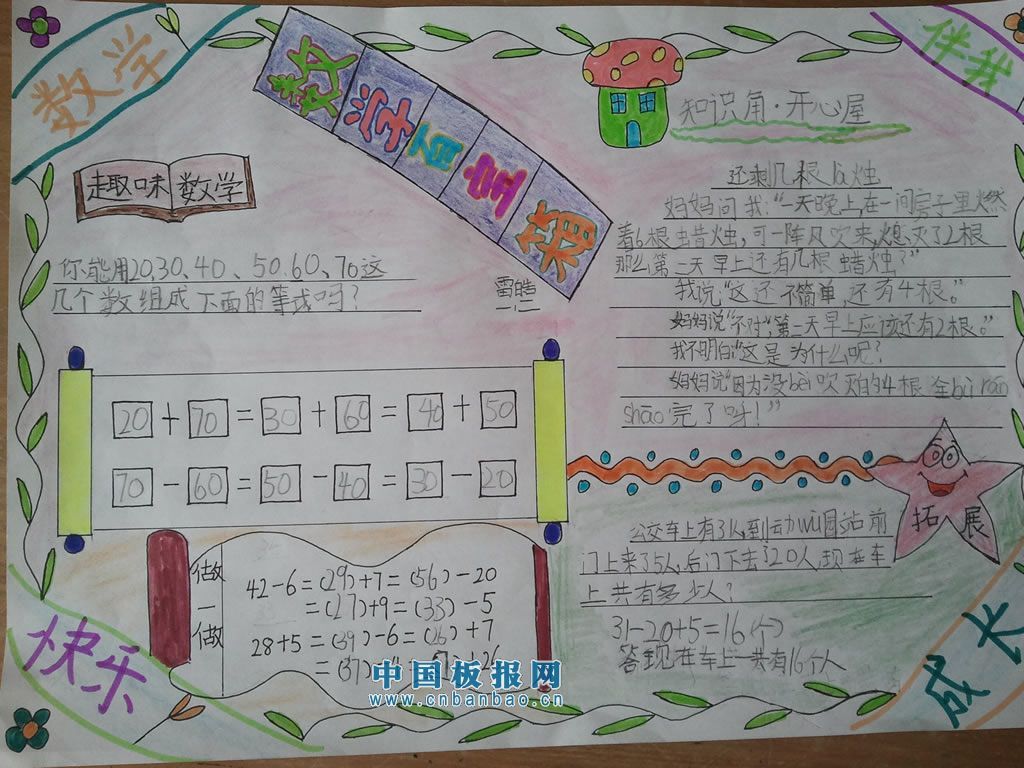 数学
伴我
数学百宝箱
知识角·开心屋
趣味数学
你能用20、30、40、50、60、70这
几个数组成下面的等式吗？
雷皓
一.二
20 + 70 = 30 + 60 = 40 + 50
70 - 60 = 50 - 40 = 30 - 20
还剩几根là烛
妈妈问我:“一天晚上,在一间房子里燃
着6根蜡烛,可一阵风吹来,熄灭了2根
那么第二天早上还有几根蜡烛?”
我说“这还不简单,还有4根。”
妈妈说“不对“第二天早上应该还有2根。”
我不明白:“这是为什么呢?
妈妈说“因为没bèi吹灭的4根全bèi rán
shāo完了呀!”
拓展
公交车上有31人,到动wù园站前
门上来了5人,后门下去了20人,现在车
上共有多少人?
31-20+5=16(个)
答:现在车上一共有16个人
做一做
42-6=(29)+7=(56)-20
=(27)+9=(33)-5
28+5=(39)-6=(26)+7
=(37)
+26
快乐
成长
中国板报网
www.cnbanbao.cn